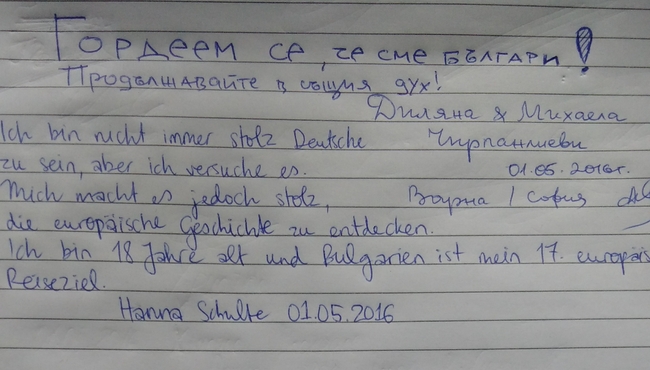 Гордеем се, че сме българи!
Продължавайте в същия дух!
Диляна & Михаела
Чирпанлиеви
01.05.2016г.
Варна / София
Ich bin nicht immer stolz Deutsche
zu sein, aber ich versuche es.
Mich macht es jedoch stolz,
die europäische Geschichte zu entdecken.
Ich bin 18 Jahre alt und Bulgarien ist mein 17. europäis
Reiseziel.
Hanna Schulte 01.05.2016